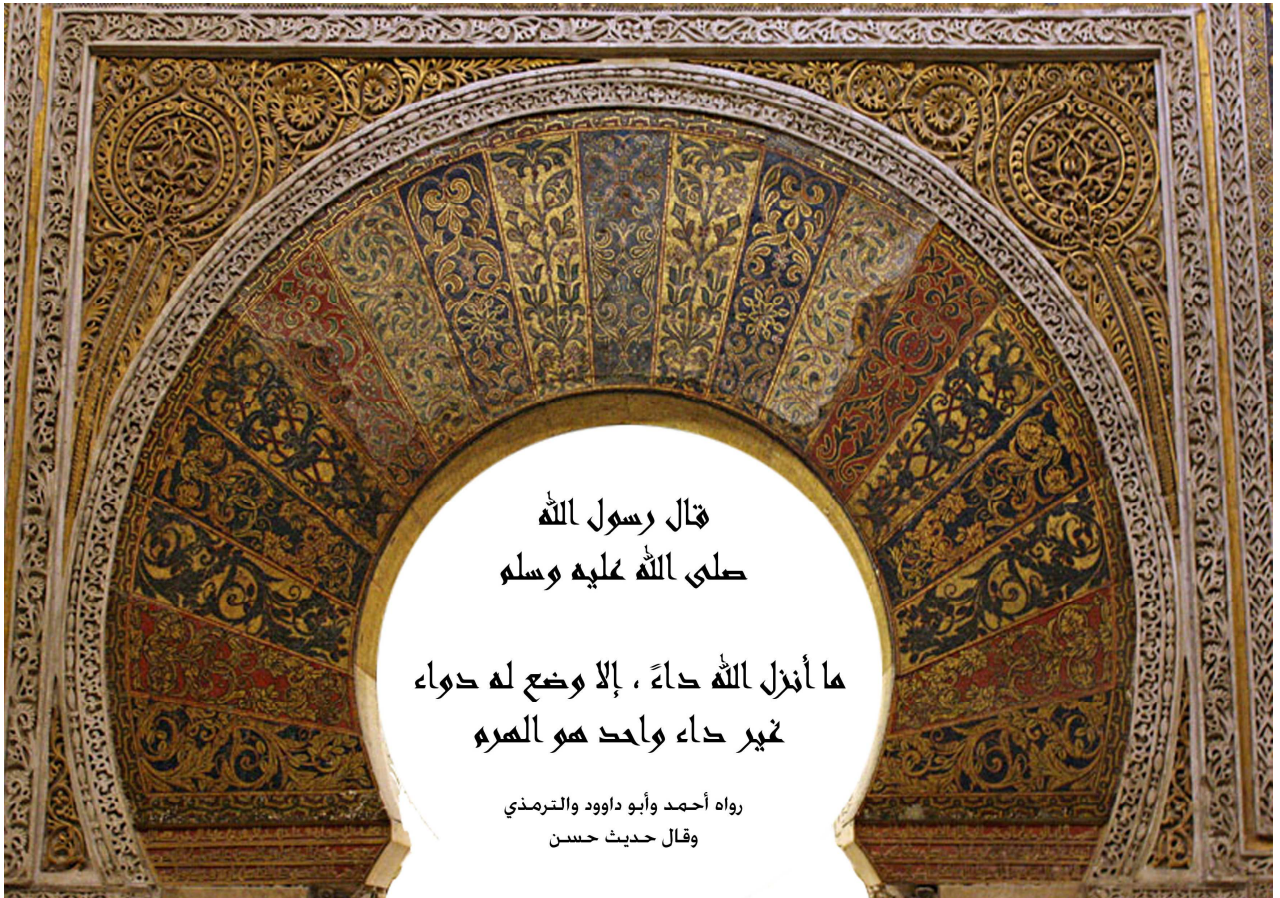 قال رسول الله
صلى الله عليه وسلم
ما أنزل الله داءً ، إلا وضع له دواء
غير داء واحد هو الهرم
رواه أحمد وأبو داوود والترمذي
وقال حديث حسن